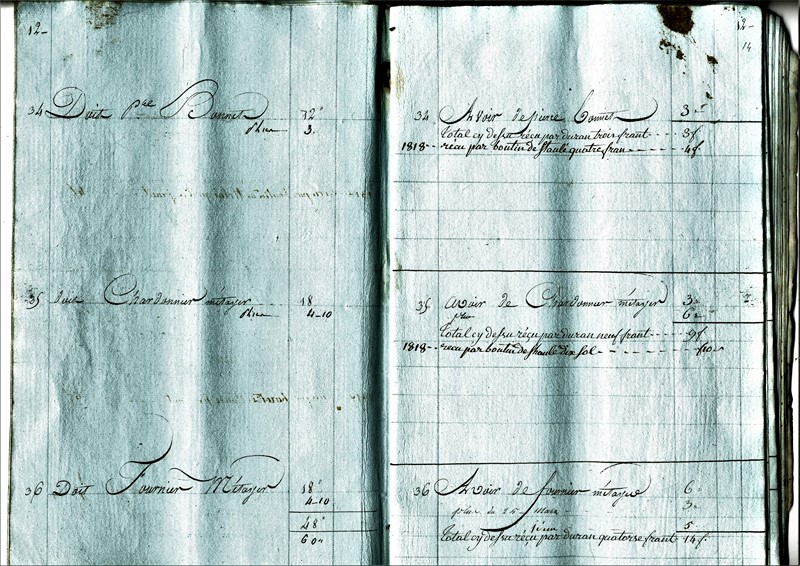 12-
34 Doit pre Bonnet 12"
plus 3.
35 doit Chardonnier métayer 18
plus 4-10
36 Doit Fournier Métayer 18"
4-10
48"
60"
12-
14
34 Avoir de pierre bonnet 3"
total cy desu réçu par duran trois frant --- 3f
1818-- réçu par boutin de staule quatre fran ----- 4f
35 avoir de Chardonnier métayer 3"
plus 6"
total cy desu réçu par duran neuf frant --- 9f
1818-- reçu par boutin de staule dix sol ------- f10"
36 Avoir de fournier métayer 6"
plus du 25 mars 3"
5
total cy desu réçu par duran quatorse frant 14f